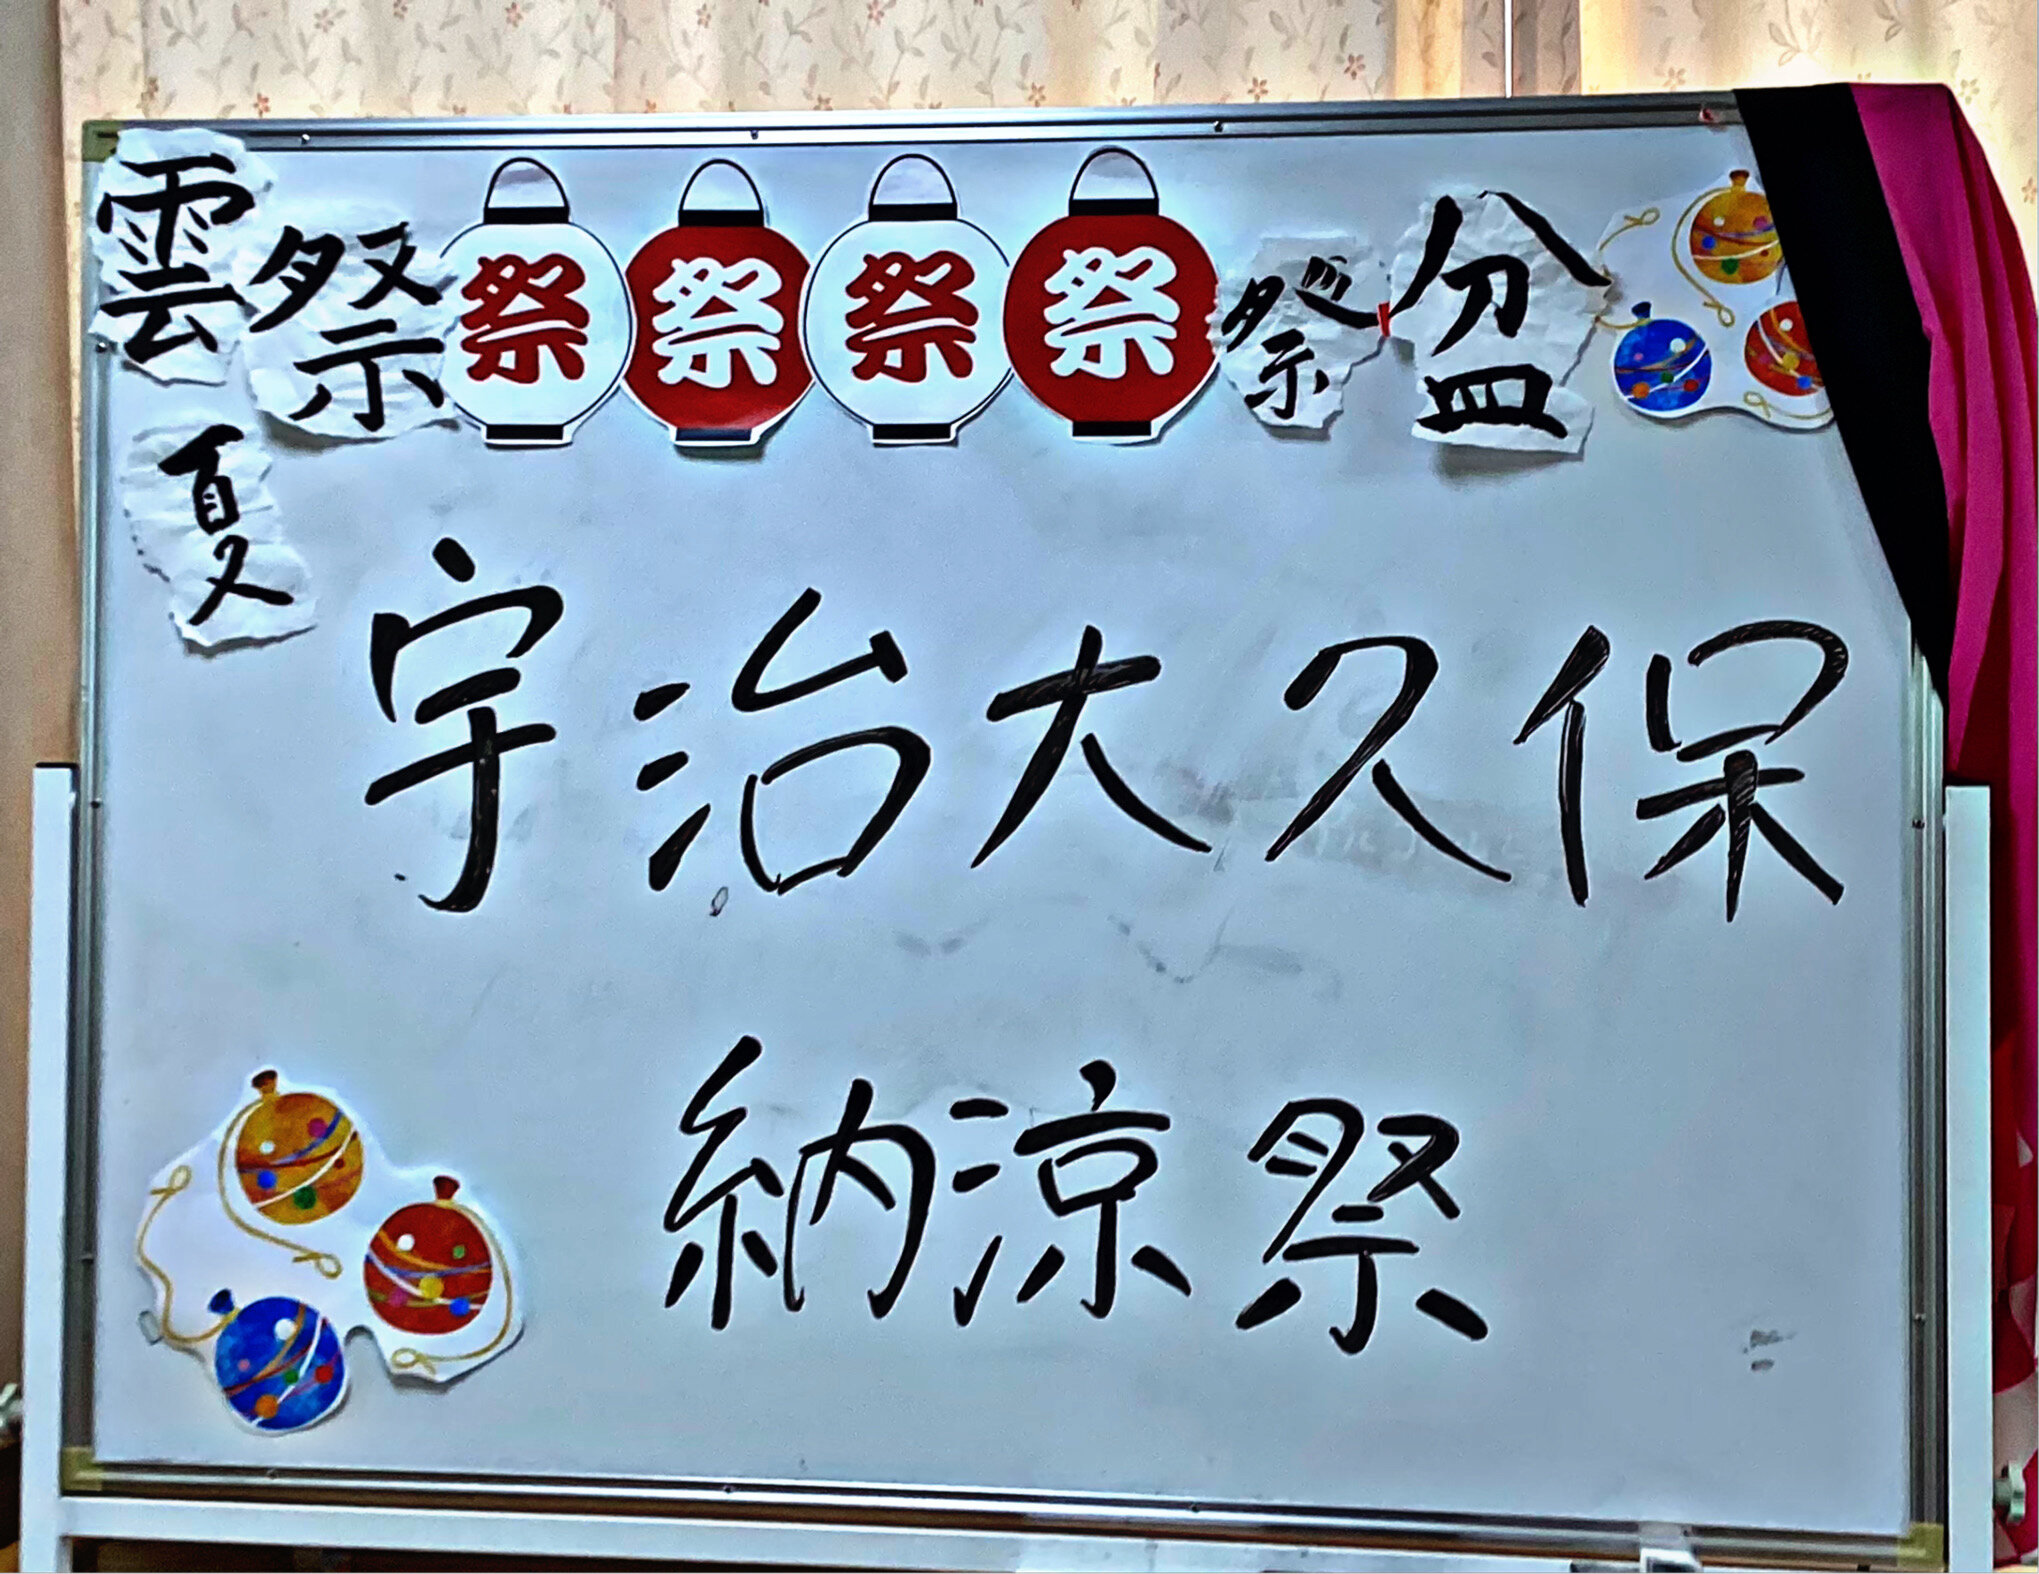 雲 祭 祭 祭 祭 祭 祭 盆
夏
宇治大久保
納涼祭